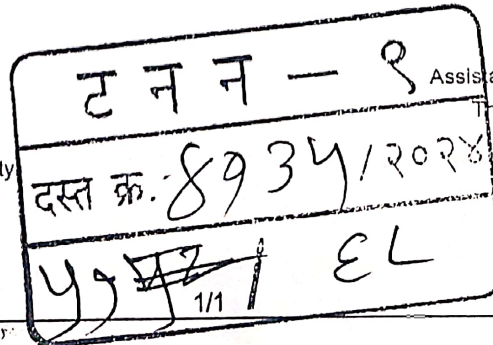 ट न न — ९ Assista
ty
दस्त क्र. ४१३५/२०२४
५१ / ६८
1/1